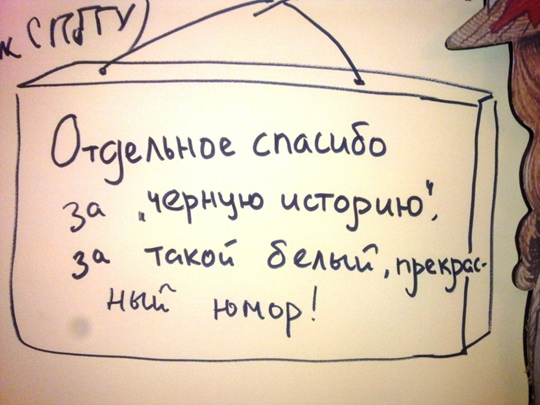 к СПбГУ)
Отдельное спасибо
за „черную историю",
за такой белый, прекрас-
ный юмор!